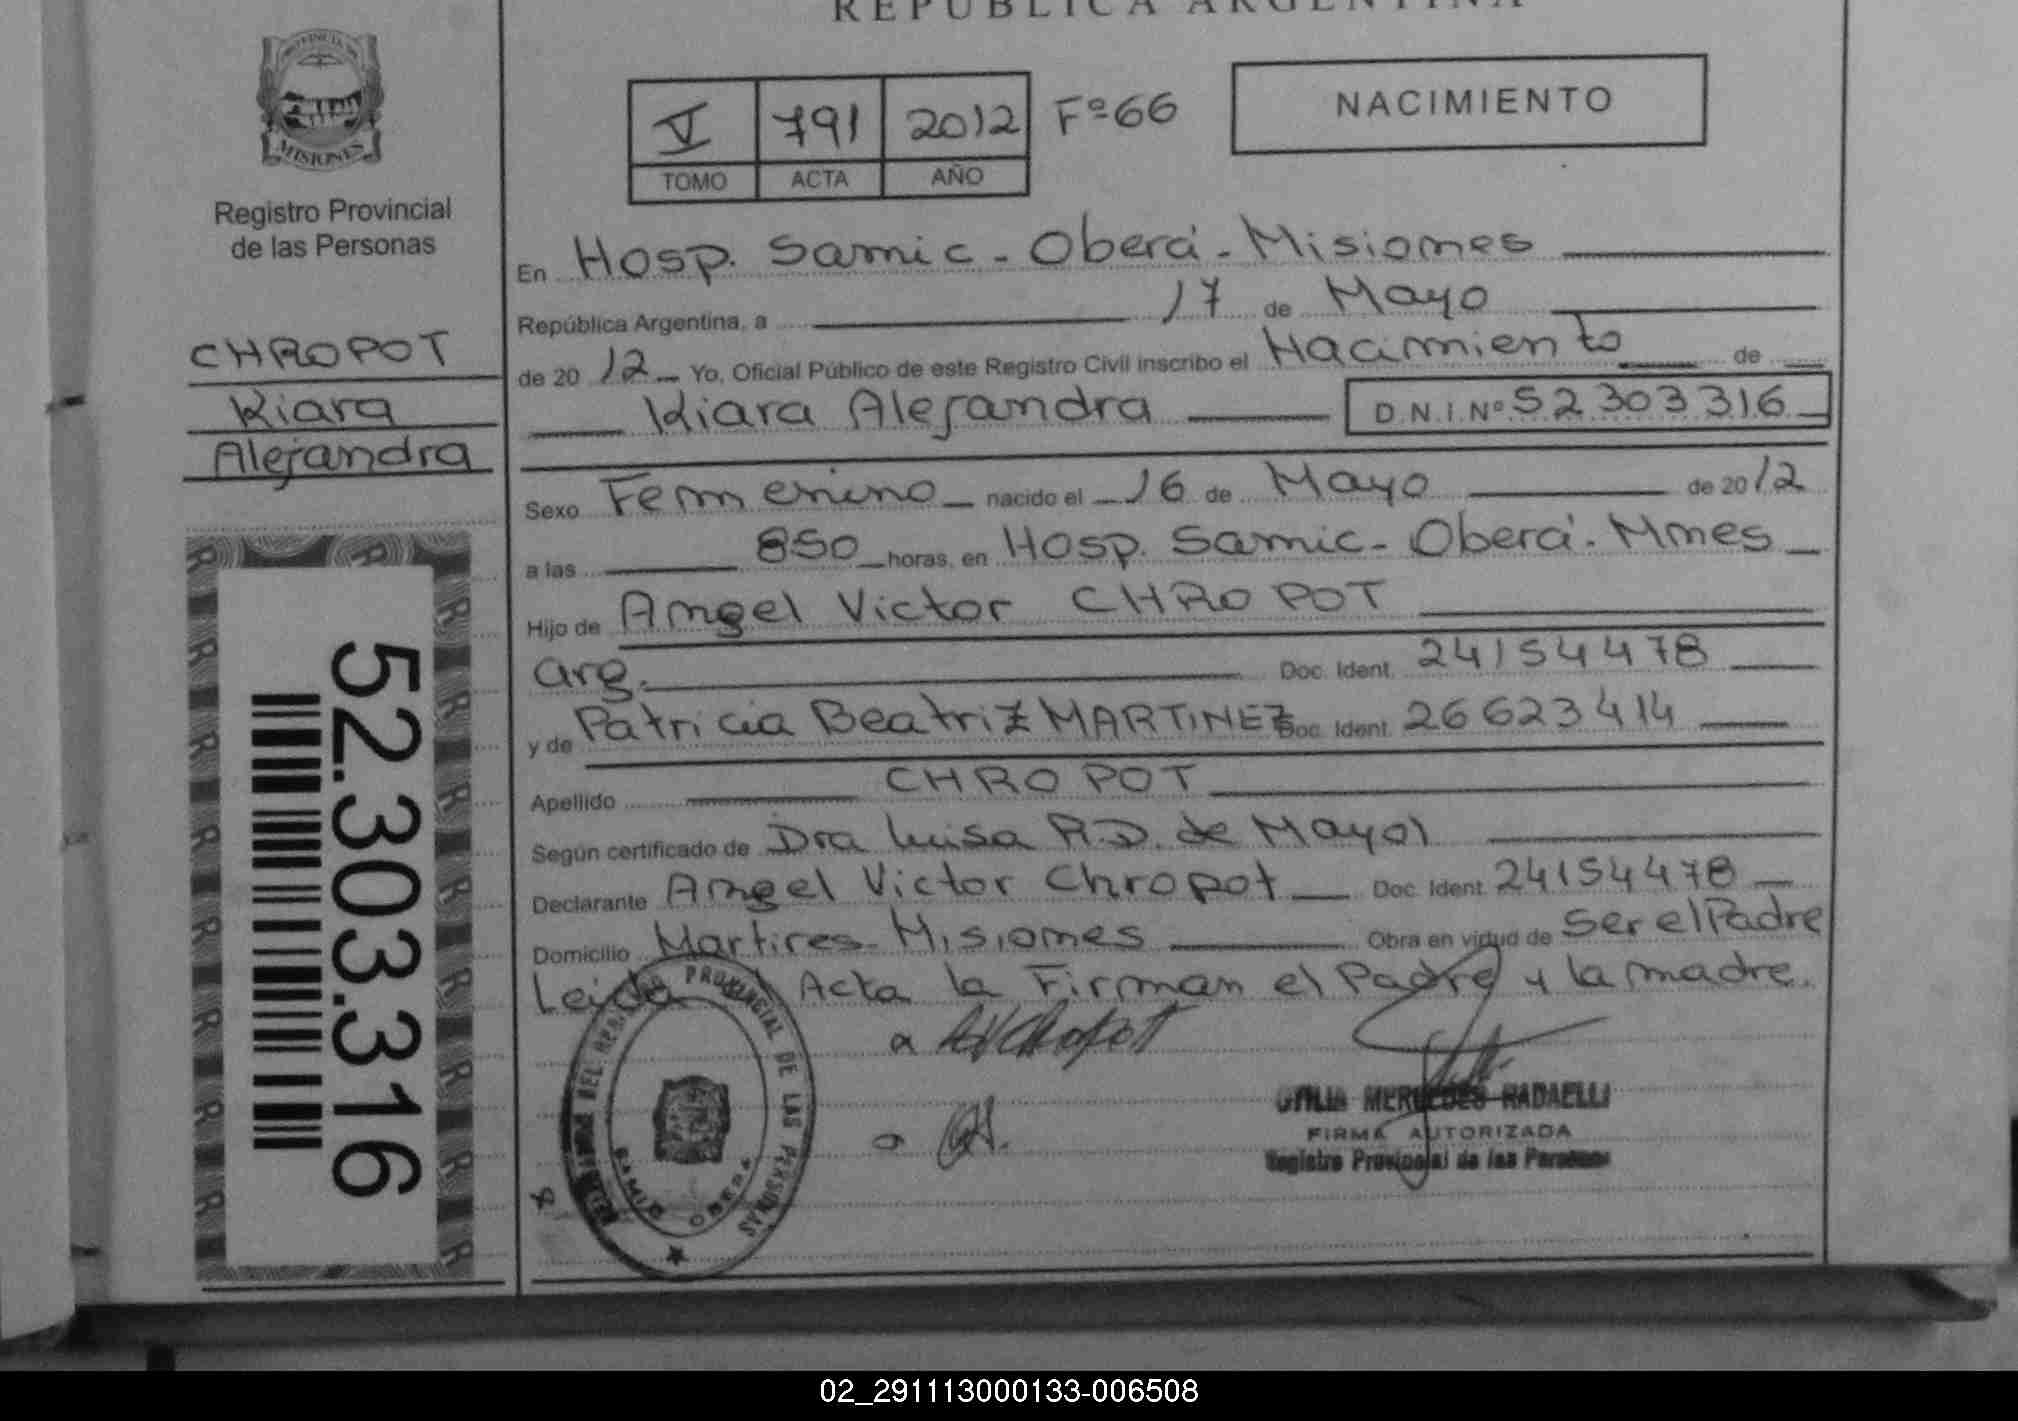 REPUBLICA ARGENTINA
PROVINCIA DE
MISIONES
Registro Provincial
de las Personas
CHROPOT
Kiara
Alejandra
52.303.316
V 791 2012 Fº 66
TOMO ACTA AÑO
NACIMIENTO
En Hosp. Samic - Oberá - Misiones
República Argentina, a 17 de Mayo
de 2012 Yo, Oficial Público de este Registro Civil inscribo el Nacimiento de
Kiara Alejandra D.N.I. Nº 52303316
Sexo Femenino nacido el 16 de Mayo de 2012
a las 850 horas, en Hosp. Samic - Oberá - Mnes
Hijo de Angel Victor CHROPOT
arg. Doc. Ident. 24154478
y de Patricia Beatriz MARTINEZ Doc. Ident. 26623414
Apellido CHROPOT
Según certificado de Dra Luisa R.D. de Mayol
Declarante Angel Victor Chropot Doc. Ident. 24154478
Domicilio Martires - Misiones Obra en virtud de Ser el Padre
Leida el Acta la Firman el Padre y la madre.
a AVChropot
a
PROVINCIAL DE LAS PERSONAS
SAMIC OBERA
MERCEDES RADAELLI
FIRMA AUTORIZADA
Registro Provincial de las Personas
02_291113000133-006508